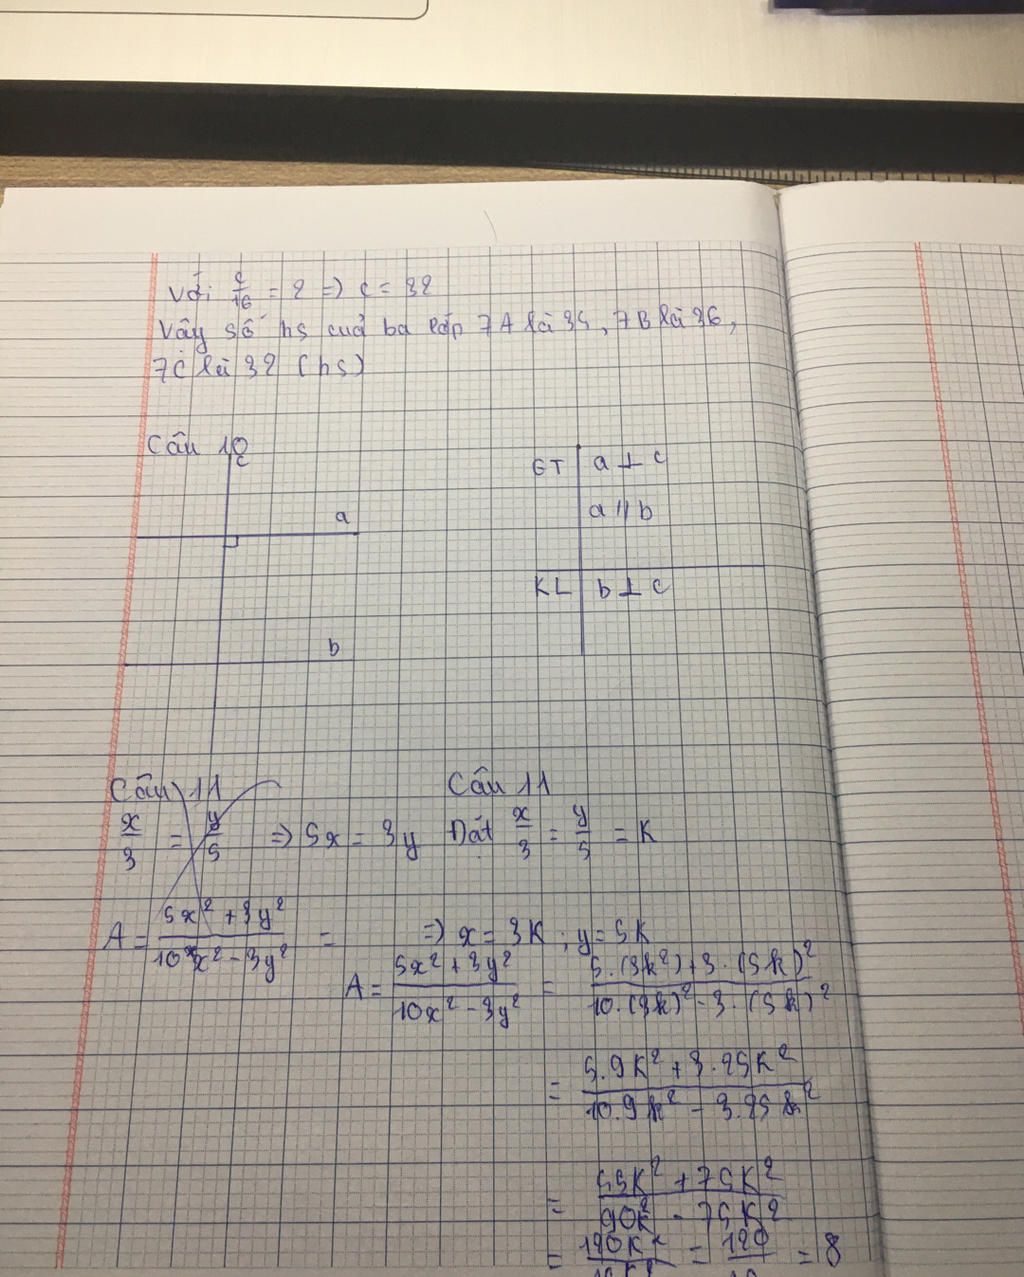 Với c/16 = 2 => c = 32
Vậy số hs cuả ba lớp 7A là 35, 7B là 36,
7C là 32 (hs)
Câu 10
c
a
b
GT | a ⊥ c
a // b
KL | b ⊥ c
Câu 11
x/3 = y/5 => 5x = 3y
A = (5x² + 3y²)/(10x² - 3y²) =
Câu 11
Đặt x/3 = y/5 = K
=> x = 3K ; y = 5K
A = (5x² + 3y²)/(10x² - 3y²) = (5.(3k²) + 3.(5k)²)/(10.(3k)² - 3.(5k)²)
= (5.9K² + 3.25K²)/(10.9k² - 3.25k²)
= (45K² + 75K²)/(90K² - 75K²)
= 120K²/ = 120/ = 8